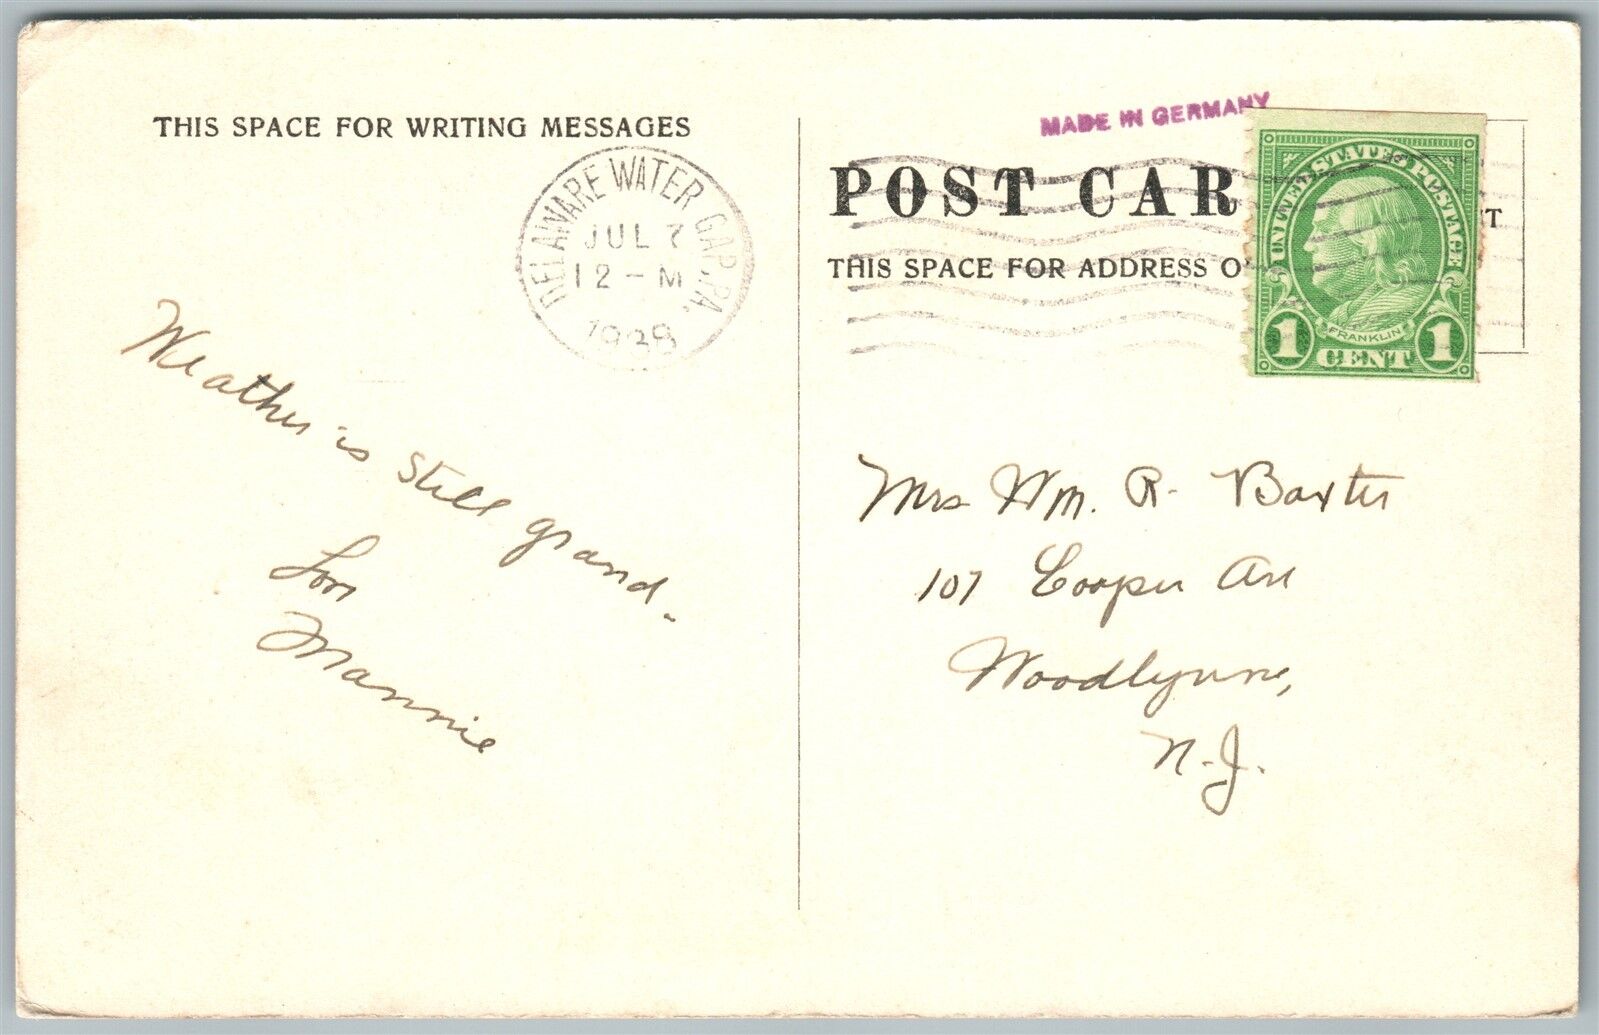 THIS SPACE FOR WRITING MESSAGES
DELAWARE WATER GAP, PA.
JUL 7
12 - M
1938
Weather is still grand.
Love
Mannie
MADE IN GERMANY
POST CAR
THIS SPACE FOR ADDRESS O
UNITED STATES POSTAGE
FRANKLIN
1 CENT 1
Mrs Wm. R. Baxter
107 Cooper Ave
Woodlynne,
N. J.